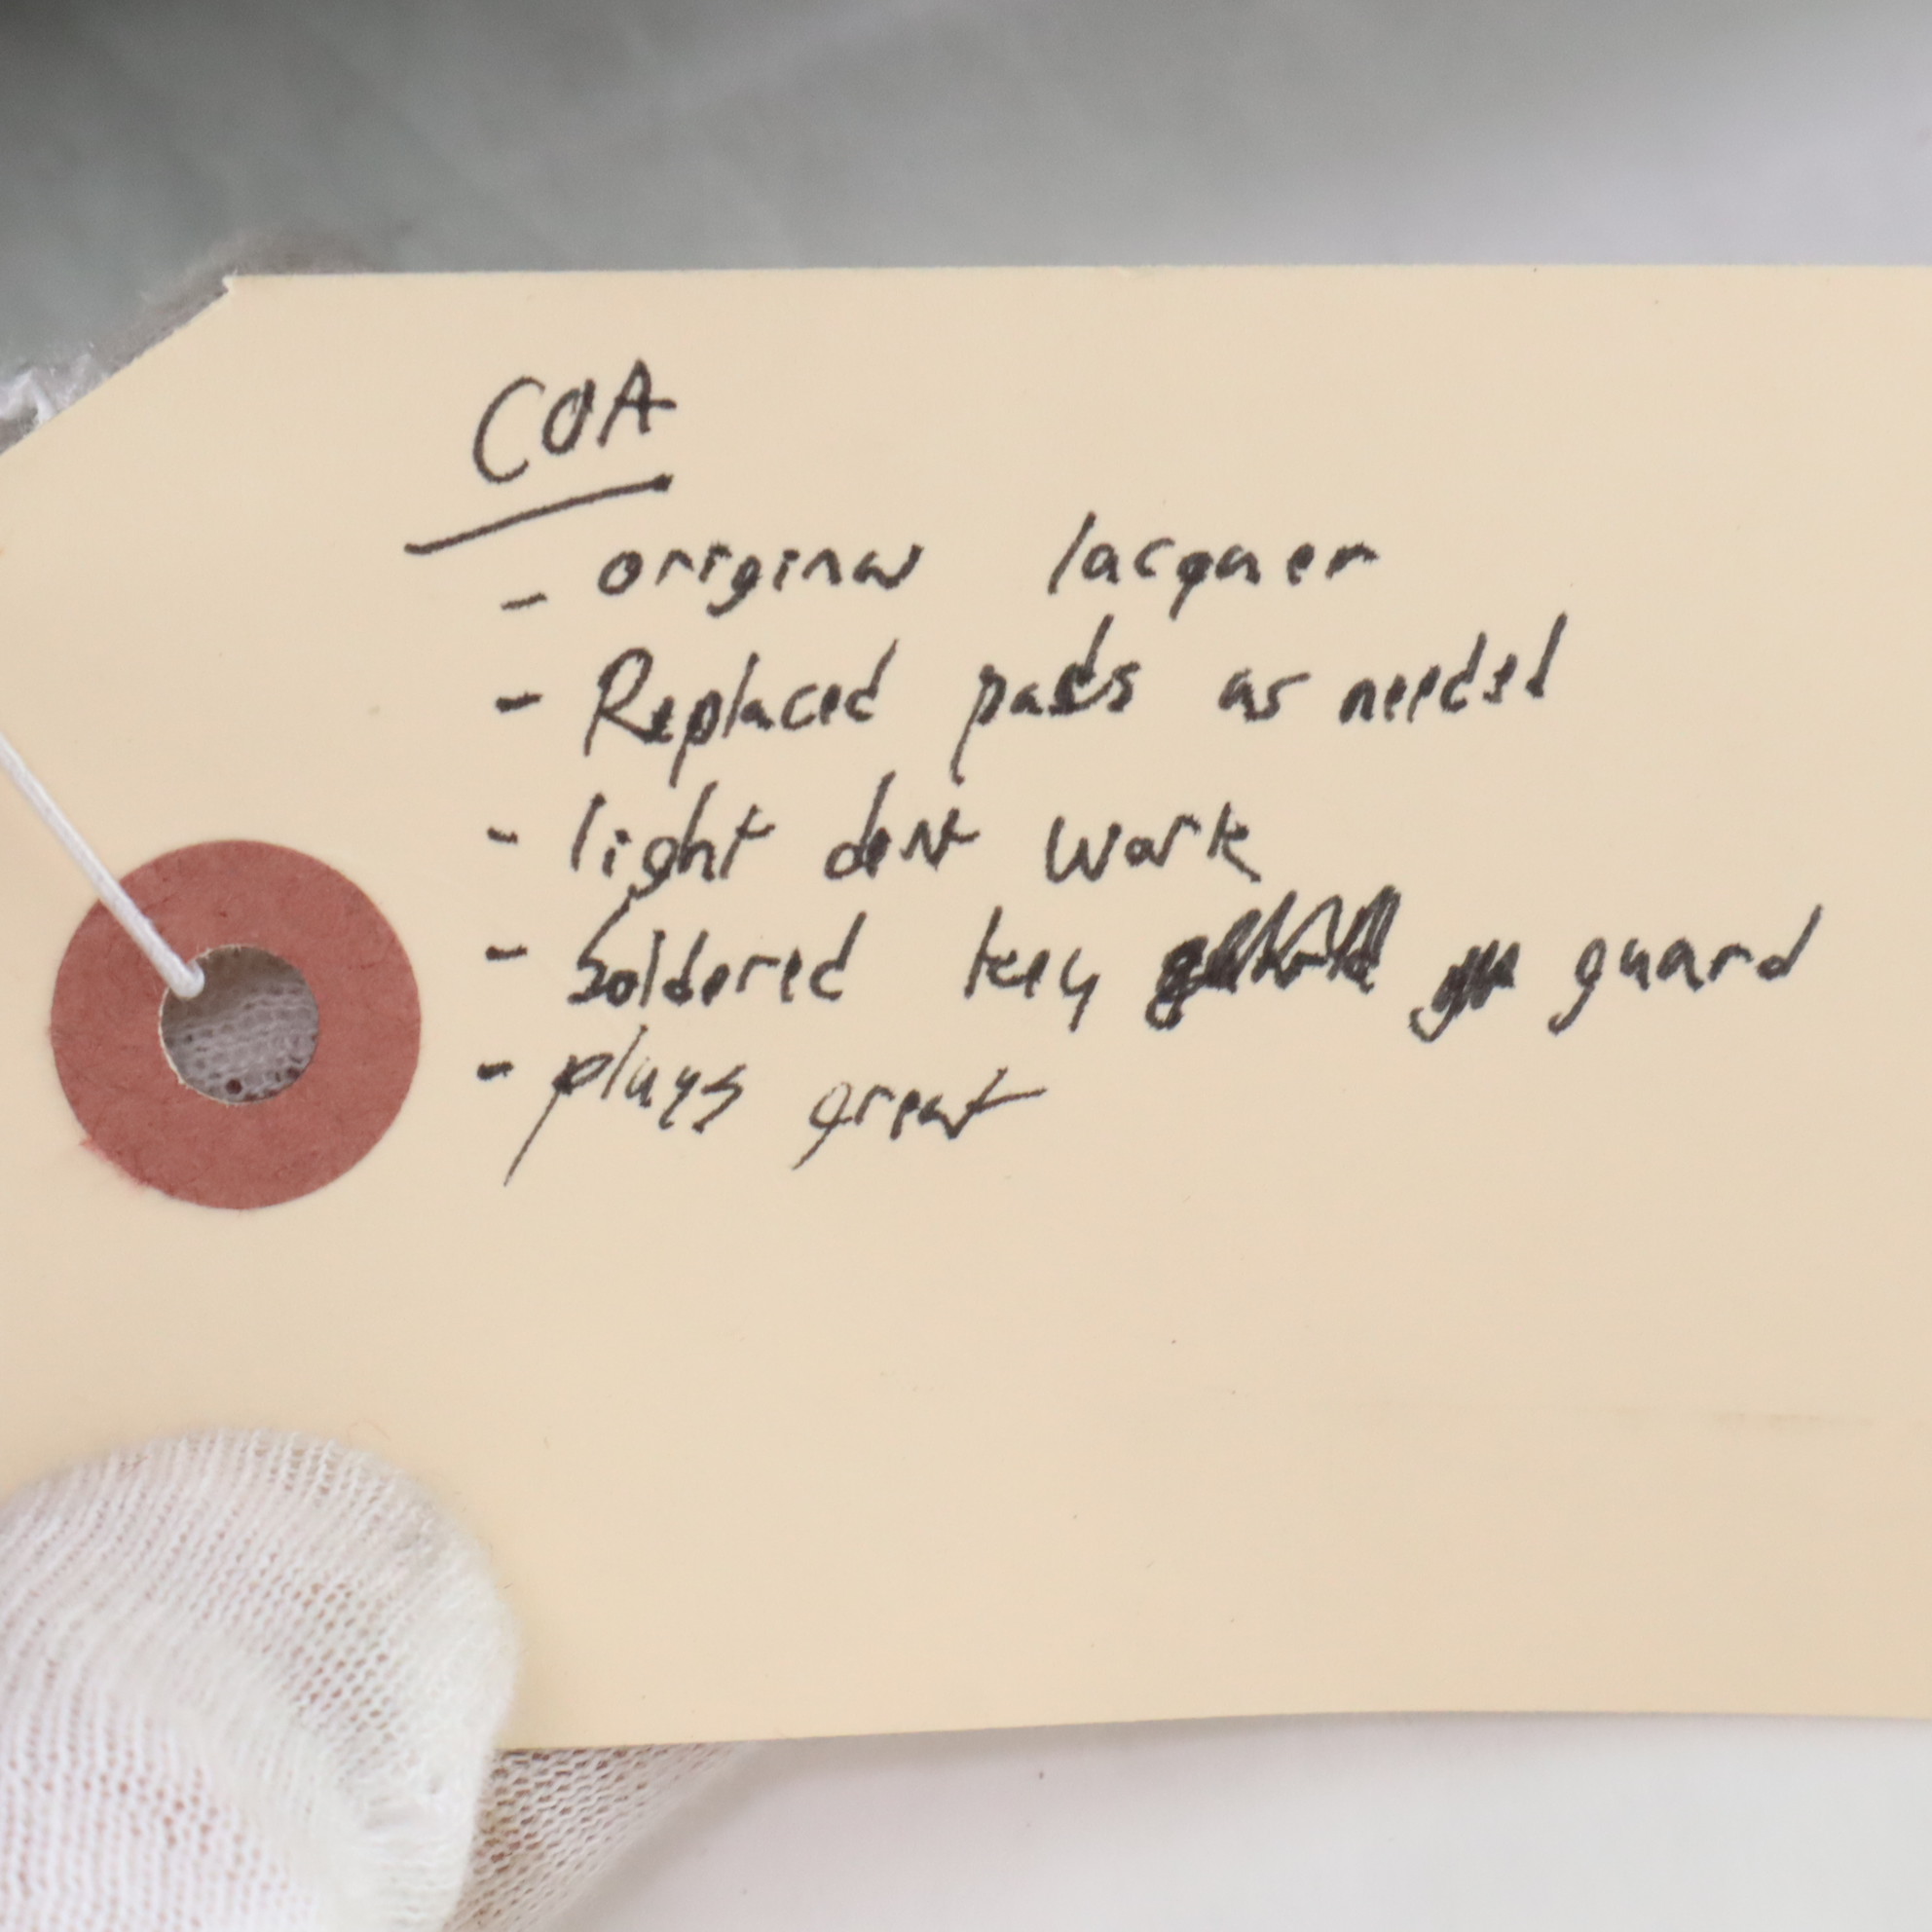 COA
- original lacquer
- Replaced pads as needed
- light dent work
- Soldered key guard
- plays great